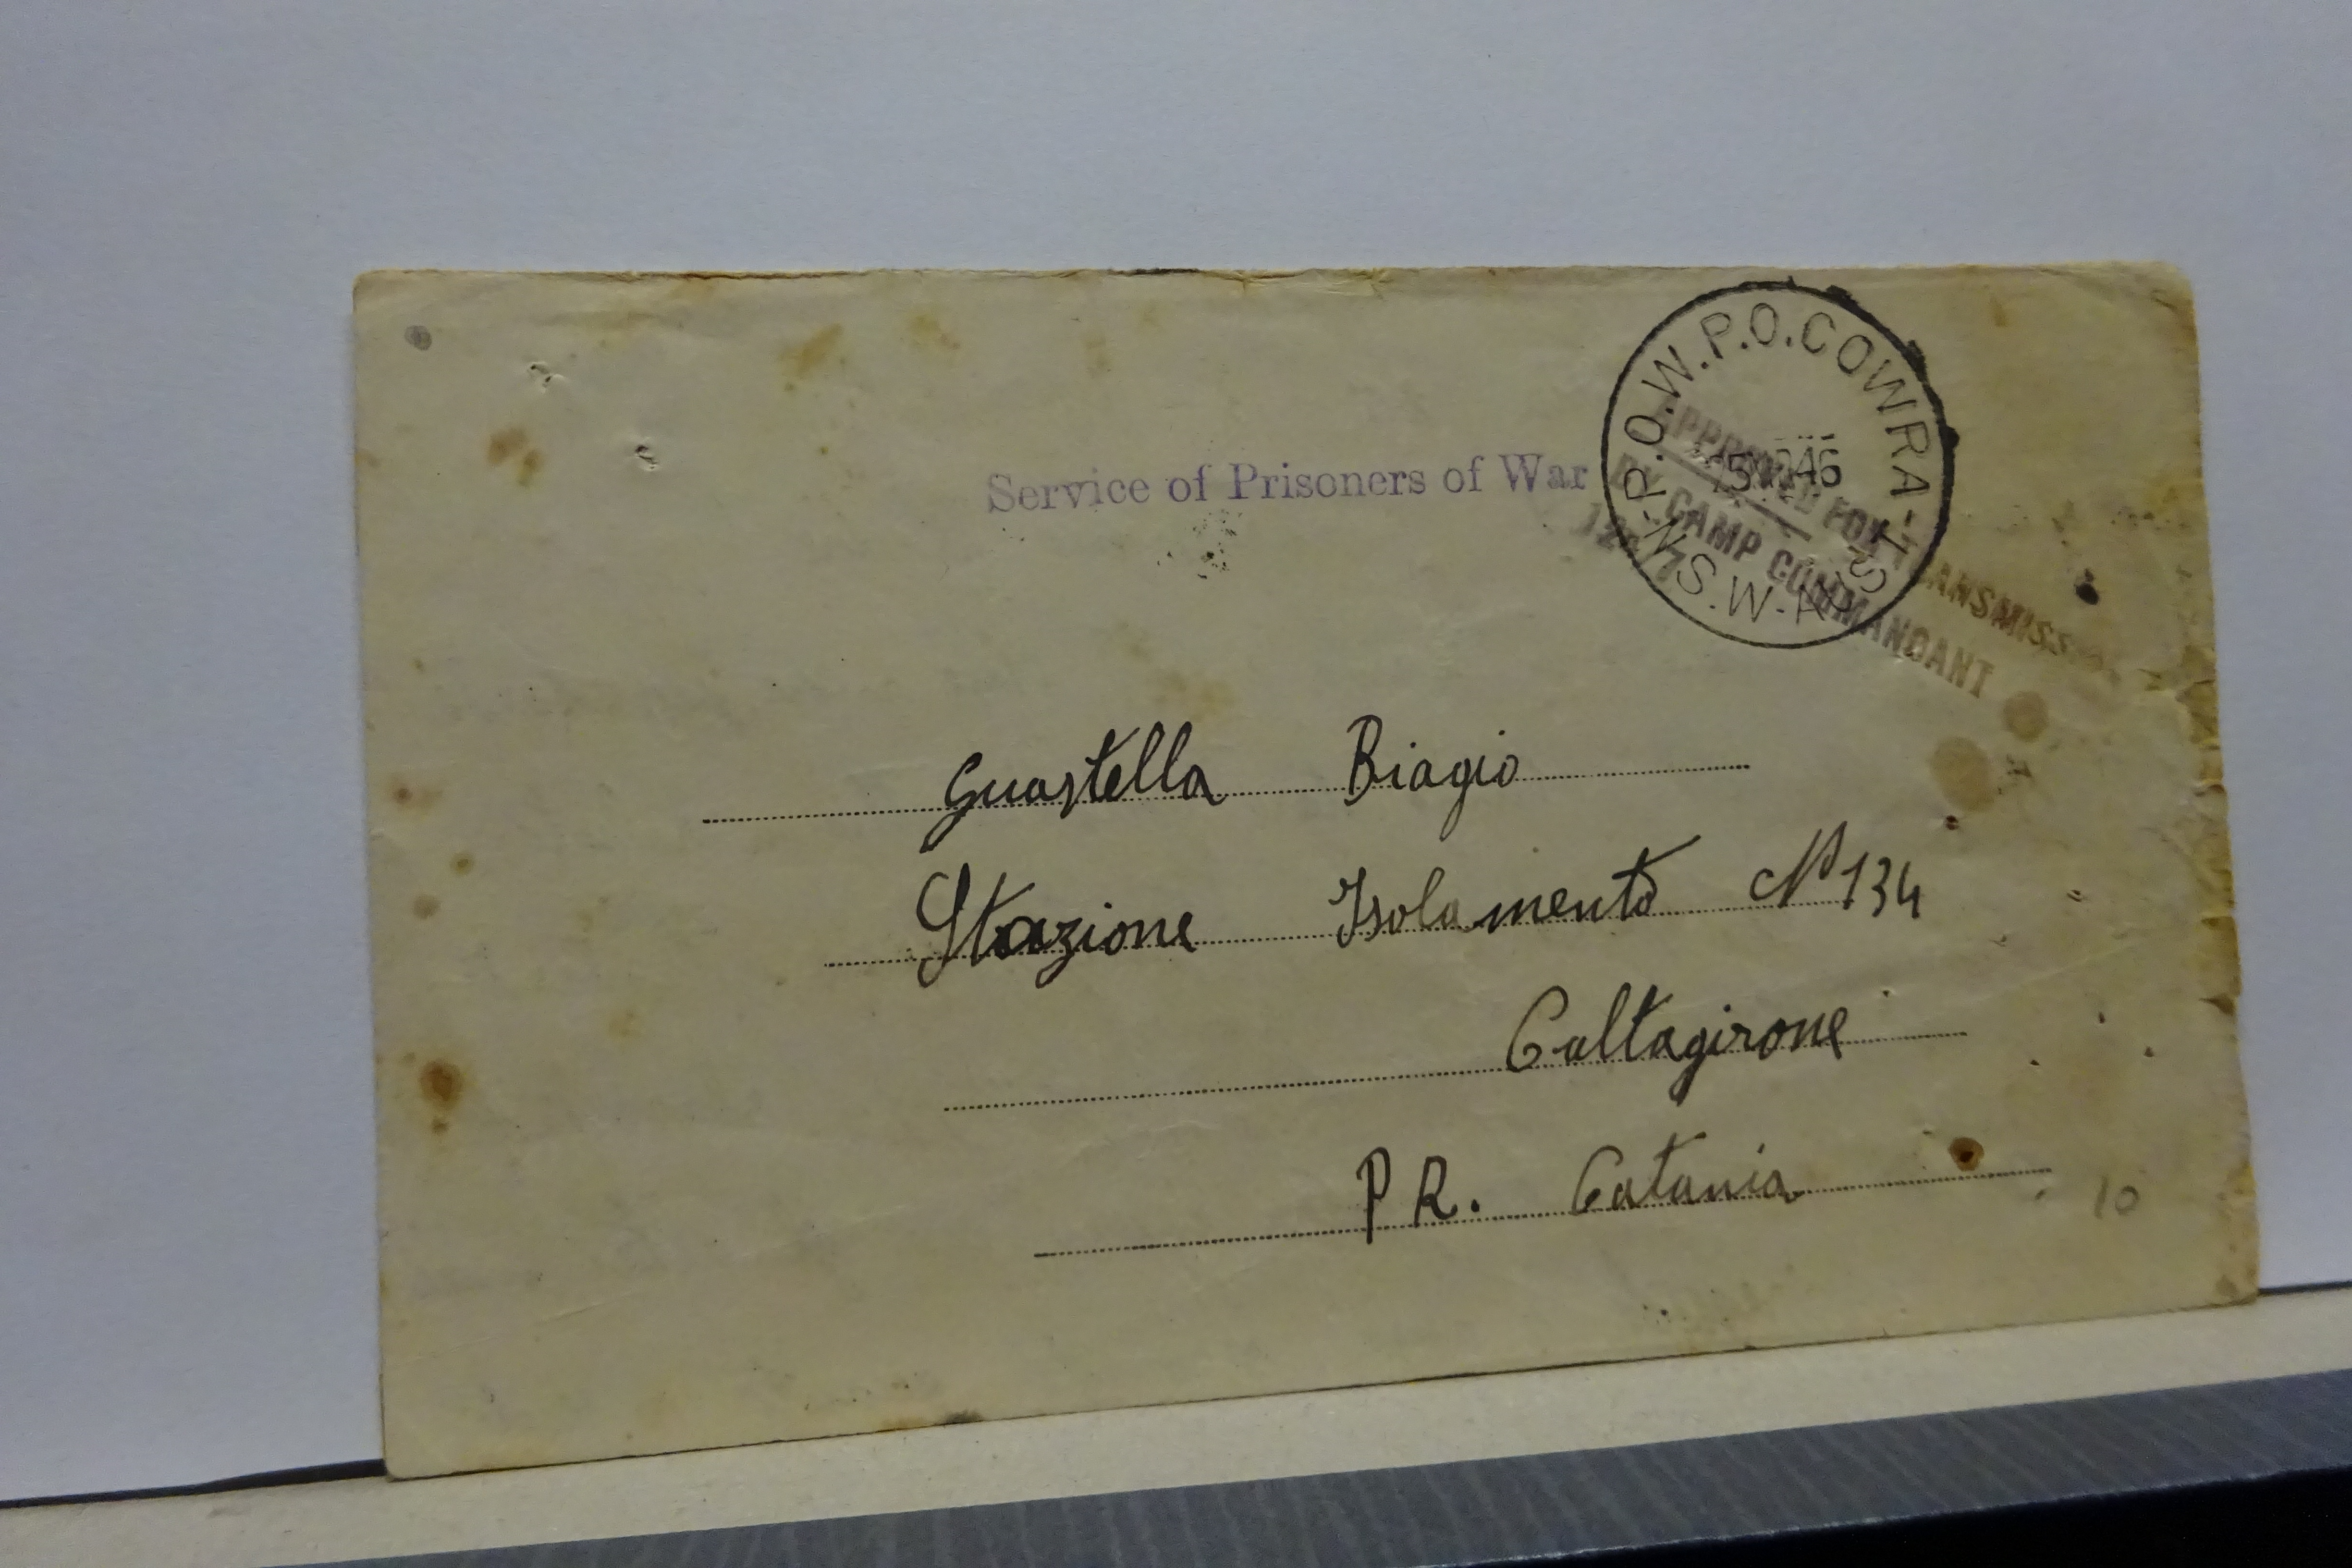 P.O.W.P.O. COWRA
N.S.W-AUST
46
APPROVED FOR TRANSMISSION
BY CAMP COMMANDANT
Service of Prisoners of War
Guastella Biagio
Stazione Isolamento N° 134
Caltagirone
PR. Catania
10